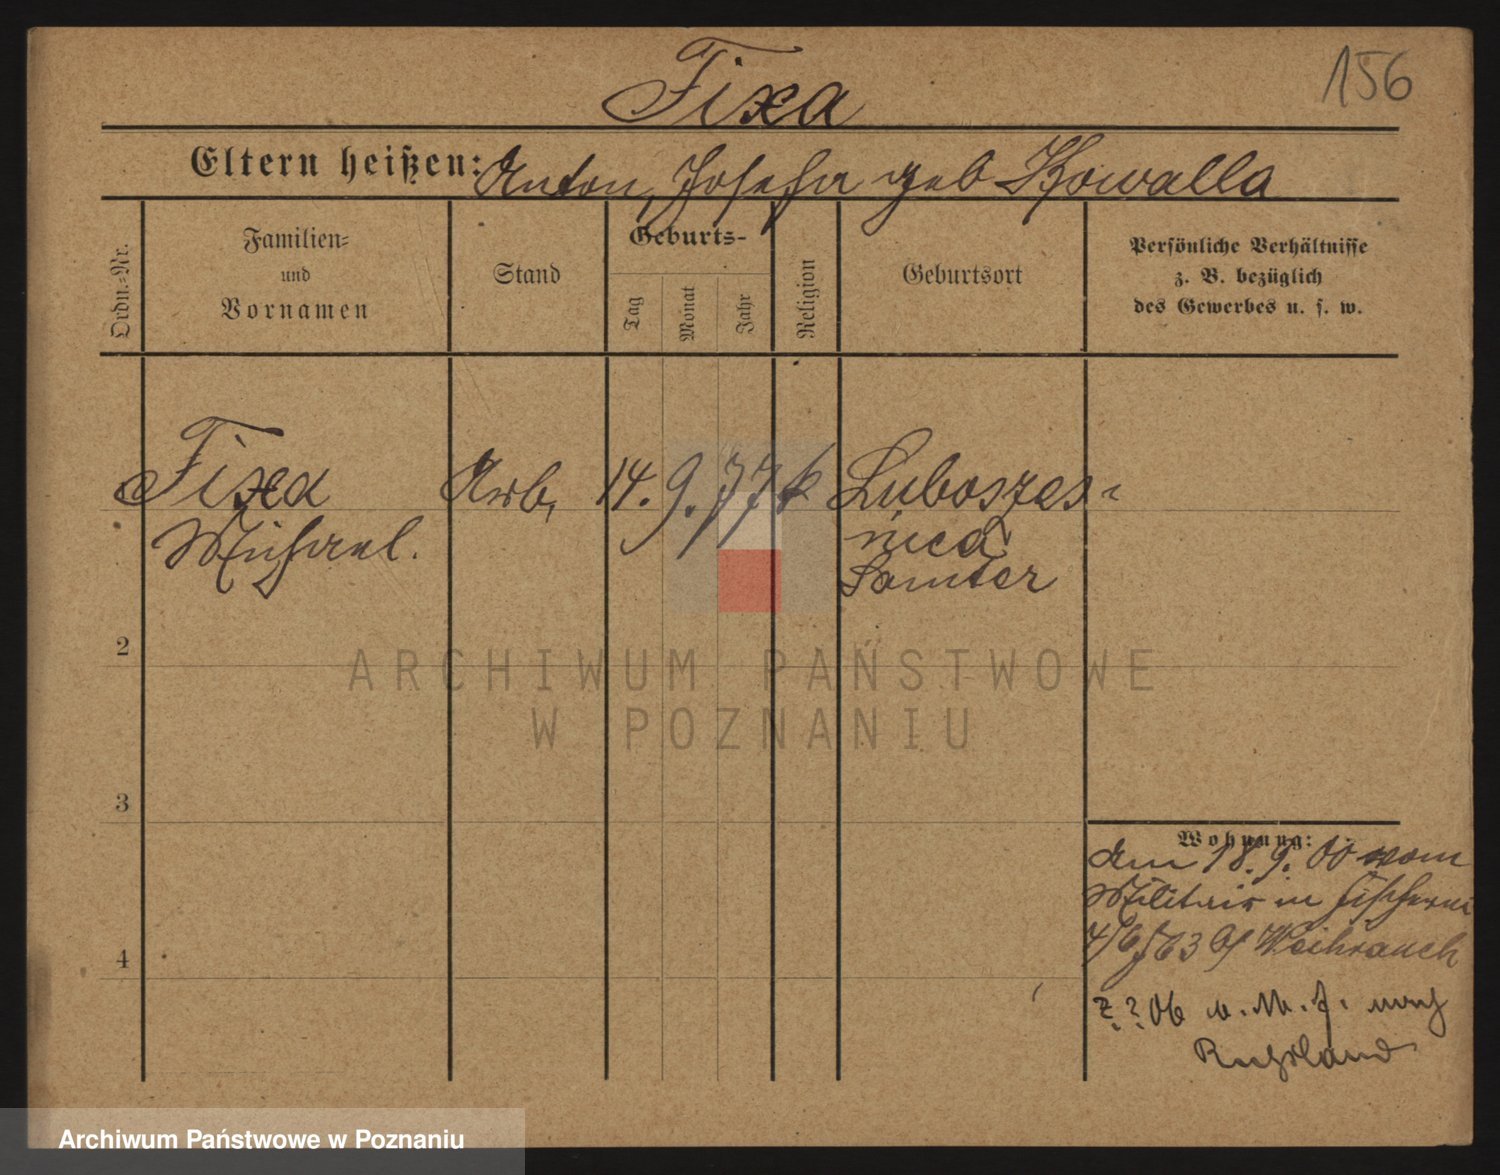 156
Fixa
Eltern heißen: Anton, Josefa geb Kowalla
Ordn.-Nr.
Familien-
und
Vornamen
Stand
Geburts-
Tag
Monat
Jahr
Religion
Geburtsort
Persönliche Verhältnisse
z. B. bezüglich
des Gewerbes u. s. w.
Fixa Arb, 14. 9. 77 k Luboszes-
Michael. nica
Samter
2
ARCHIWUM PAŃSTWOWE
W POZNANIU
3
Wohnung:
Am 18. 9. 00 vom
Militair in
Weihrauch
4
06 v. M. J. nach
Russland
Archiwum Państwowe w Poznaniu